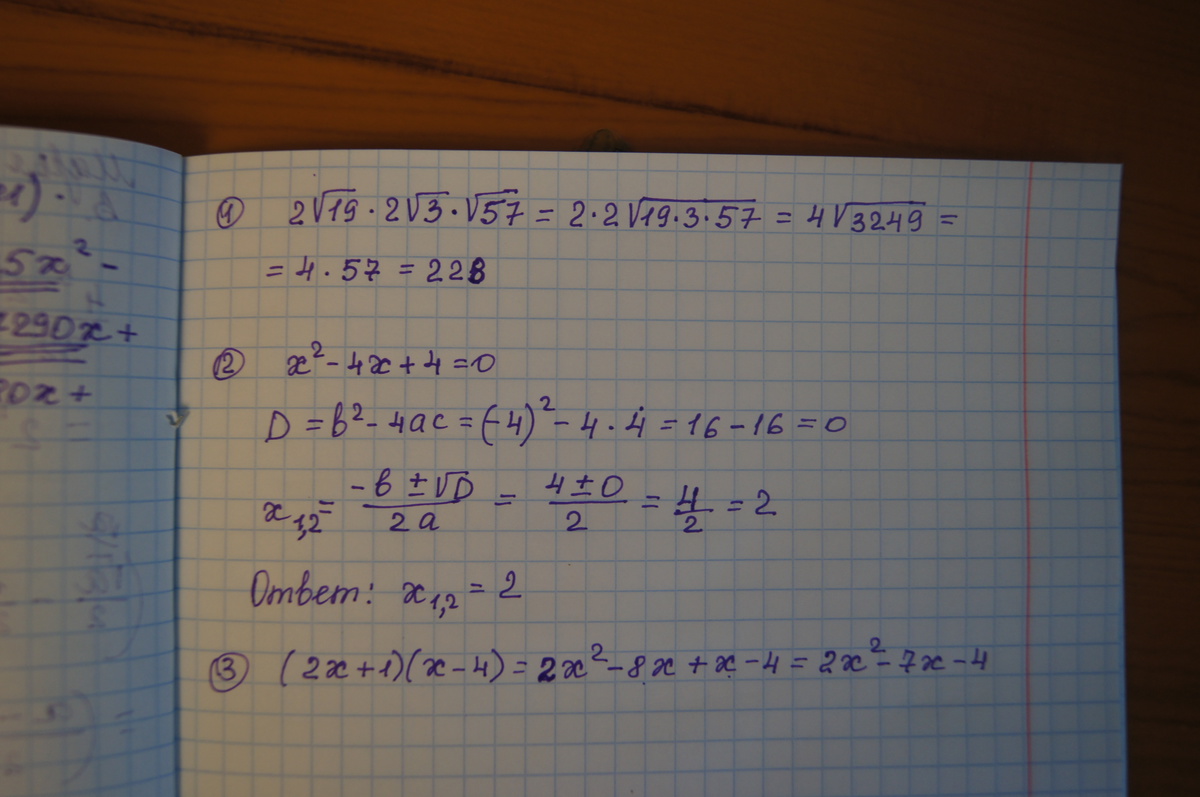 ① 2√19 · 2√3 · √57 = 2·2√19·3·57 = 4√3249 =
= 4 · 57 = 228
② x² - 4x + 4 = 0
D = b² - 4ac = (-4)² - 4 · 4 = 16 - 16 = 0
x₁,₂ = (-b ± √D)/(2a) = (4 ± 0)/2 = 4/2 = 2
Ответ: x₁,₂ = 2
③ (2x+1)(x-4) = 2x² - 8x + x - 4 = 2x² - 7x - 4
5x² -
290x +
0x +